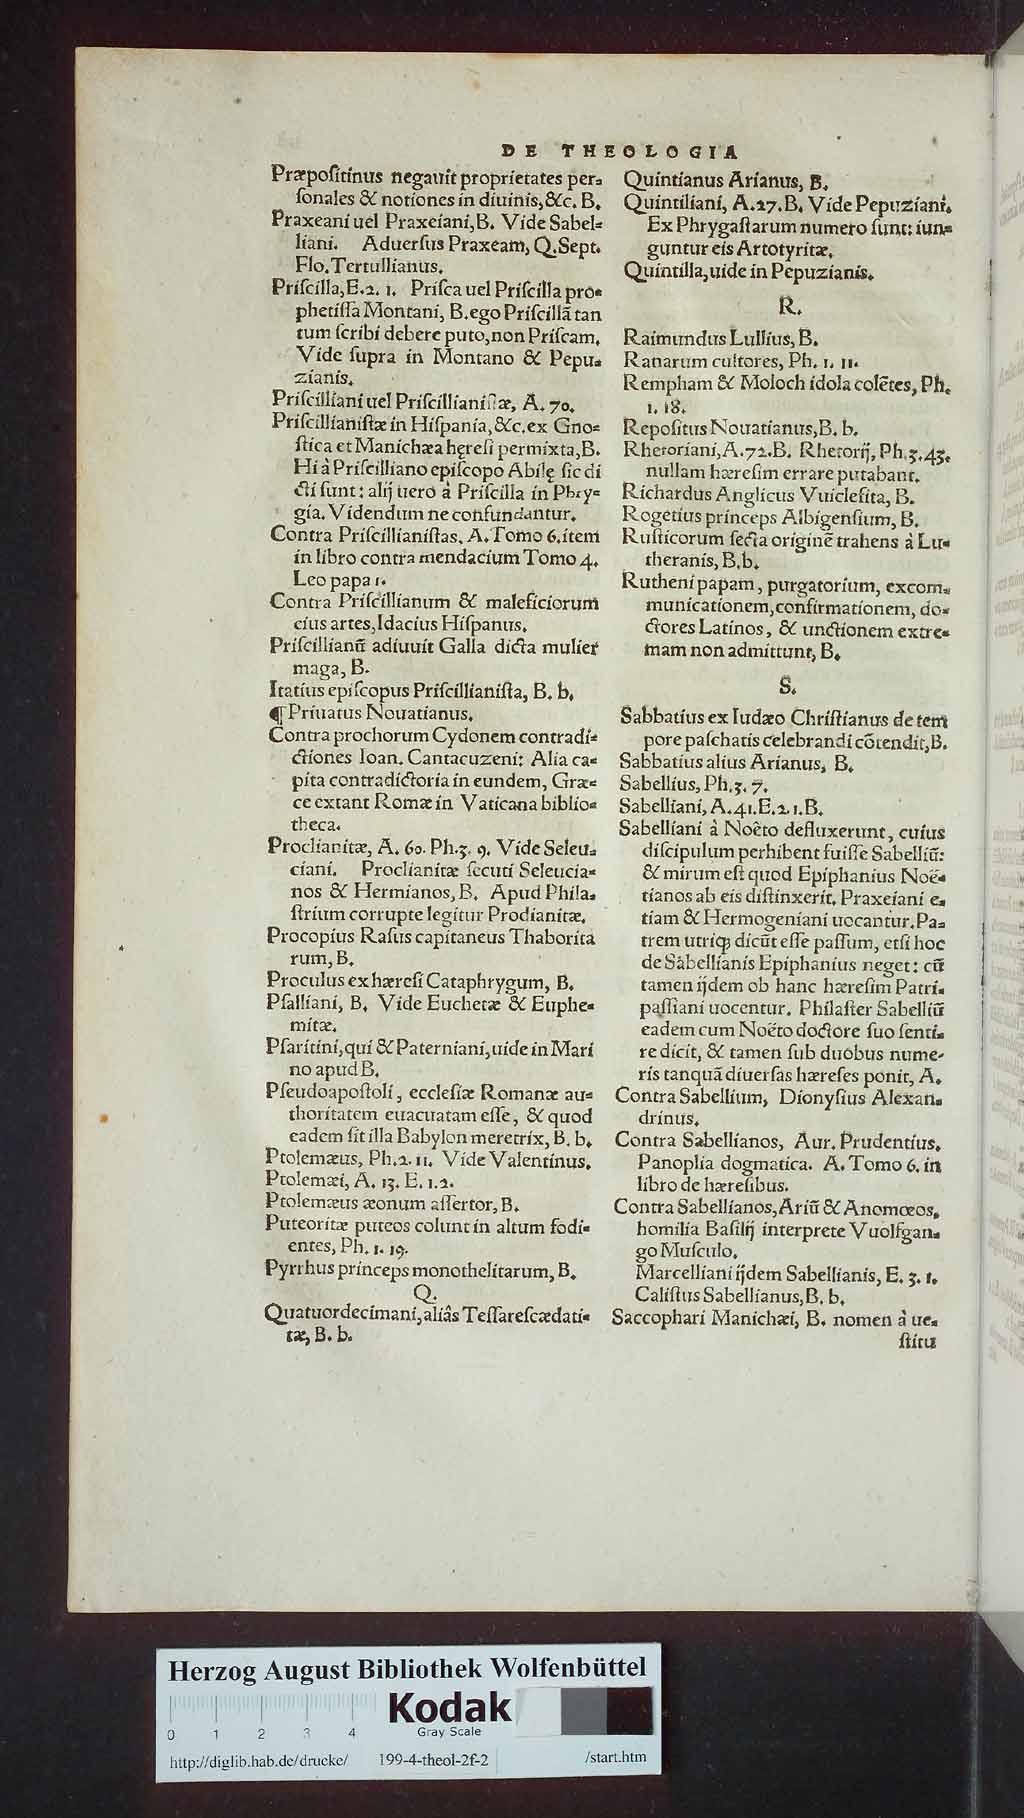 DE THEOLOGIA
Præpoſitinus negauit proprietates per-
ſonales & notiones in diuinis, &c. B.
Praxeani uel Praxeiani, B. Vide Sabel-
liani. Aduerſus Praxeam, Q. Sept.
Flo. Tertullianus.
Priſcilla, E. 2. 1. Priſca uel Priſcilla pro-
phetiſſa Montani, B. ego Priſcillã tan
tum ſcribi debere puto, non Priſcam.
Vide ſupra in Montano & Pepu-
zianis.
Priſcilliani uel Priſcillianiſtæ, A. 70.
Priſcillianiſtæ in Hiſpania, &c. ex Gno-
ſtica et Manichæa hęreſi permixta, B.
Hi à Priſcilliano epiſcopo Abilę ſic di
cti ſunt: alij uero à Priſcilla in Phry-
gia. Videndum ne confundantur.
Contra Priſcillianiſtas. A. Tomo 6. item
in libro contra mendacium Tomo 4.
Leo papa 1.
Contra Priſcillianum & maleficiorum
eius artes, Idacius Hiſpanus.
Priſcillianũ adiuuit Galla dicta mulier
maga, B.
Itatius epiſcopus Priſcillianiſta, B. b.
¶ Priuatus Nouatianus.
Contra prochorum Cydonem contradi-
ctiones Ioan. Cantacuzeni: Alia ca-
pita contradictoria in eundem, Græ-
ce extant Romæ in Vaticana biblio-
theca.
Proclianitæ, A. 60. Ph. 3. 9. Vide Seleu-
ciani. Proclianitæ ſecuti Seleucia-
nos & Hermianos, B. Apud Phila-
ſtrium corrupte legitur Prodianitæ.
Procopius Raſus capitaneus Thaborita
rum, B.
Proculus ex hæreſi Cataphrygum, B.
Pſalliani, B. Vide Euchetæ & Euphe-
mitæ.
Pſaritini, qui & Paterniani, uide in Mari
no apud B.
Pſeudoapoſtoli, eccleſiæ Romanæ au-
thoritatem euacuatam eſſe, & quod
eadem ſit illa Babylon meretrix, B. b.
Ptolemæus, Ph. 2. 11. Vide Valentinus.
Ptolemæi, A. 13. E. 1. 2.
Ptolemæus æonum aſſertor, B.
Puteoritæ puteos colunt in altum fodi-
entes, Ph. 1. 19.
Pyrrhus princeps monothelitarum, B.
Q.
Quatuordecimani, aliâs Teſſareſcædati-
tæ, B. b.
Quintianus Arianus, B.
Quintiliani, A. 27. B. Vide Pepuziani.
Ex Phrygaſtarum numero ſunt: iun-
guntur eis Artotyritæ.
Quintilla, uide in Pepuzianis.
R.
Raimundus Lullius, B.
Ranarum cultores, Ph. 1. 11.
Rempham & Moloch idola colẽtes, Ph.
1. 18.
Repoſitus Nouatianus, B. b.
Rhetoriani, A. 72. B. Rhetorij, Ph. 3. 43.
nullam hæreſim errare putabant.
Richardus Anglicus Vuicleſita, B.
Rogetius princeps Albigenſium, B.
Ruſticorum ſecta originẽ trahens à Lu-
theranis, B. b.
Rutheni papam, purgatorium, excom-
municationem, confirmationem, do-
ctores Latinos, & unctionem extre-
mam non admittunt, B.
S.
Sabbatius ex Iudæo Chriſtianus de tem
pore paſchatis celebrandi cõtendit, B.
Sabbatius alius Arianus, B.
Sabellius, Ph. 3. 7.
Sabelliani, A. 41. E. 2. 1. B.
Sabelliani à Noëto defluxerunt, cuius
diſcipulum perhibent fuiſſe Sabelliũ:
& mirum eſt quod Epiphanius Noë-
tianos ab eis diſtinxerit. Praxeiani e-
tiam & Hermogeniani uocantur. Pa-
trem utriq; dicũt eſſe paſſum, etſi hoc
de Sabellianis Epiphanius neget: cũ
tamen ijdem ob hanc hæreſim Patri-
paſſiani uocentur. Philaſter Sabelliũ
eadem cum Noëto doctore ſuo ſenti-
re dicit, & tamen ſub duobus nume-
ris tanquã diuerſas hæreſes ponit, A.
Contra Sabellium, Dionyſius Alexan-
drinus.
Contra Sabellianos, Aur. Prudentius.
Panoplia dogmatica. A. Tomo 6. in
libro de hæreſibus.
Contra Sabellianos, Ariũ & Anomœos,
homilia Baſilij interprete Vuolfgan-
go Muſculo.
Marcelliani ijdem Sabellianis, E. 3. 1.
Caliſtus Sabellianus, B. b.
Saccophari Manichæi, B. nomen à ue-
ſtitu
Herzog August Bibliothek Wolfenbüttel
0 1 2 3 4
Kodak
Gray Scale
http://diglib.hab.de/drucke/ 199-4-theol-2f-2 /start.htm